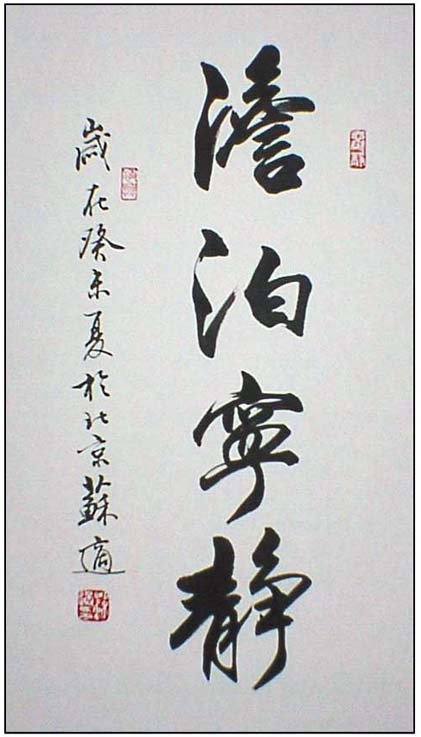 澹泊寧静
歲在癸未夏於北京蘇適